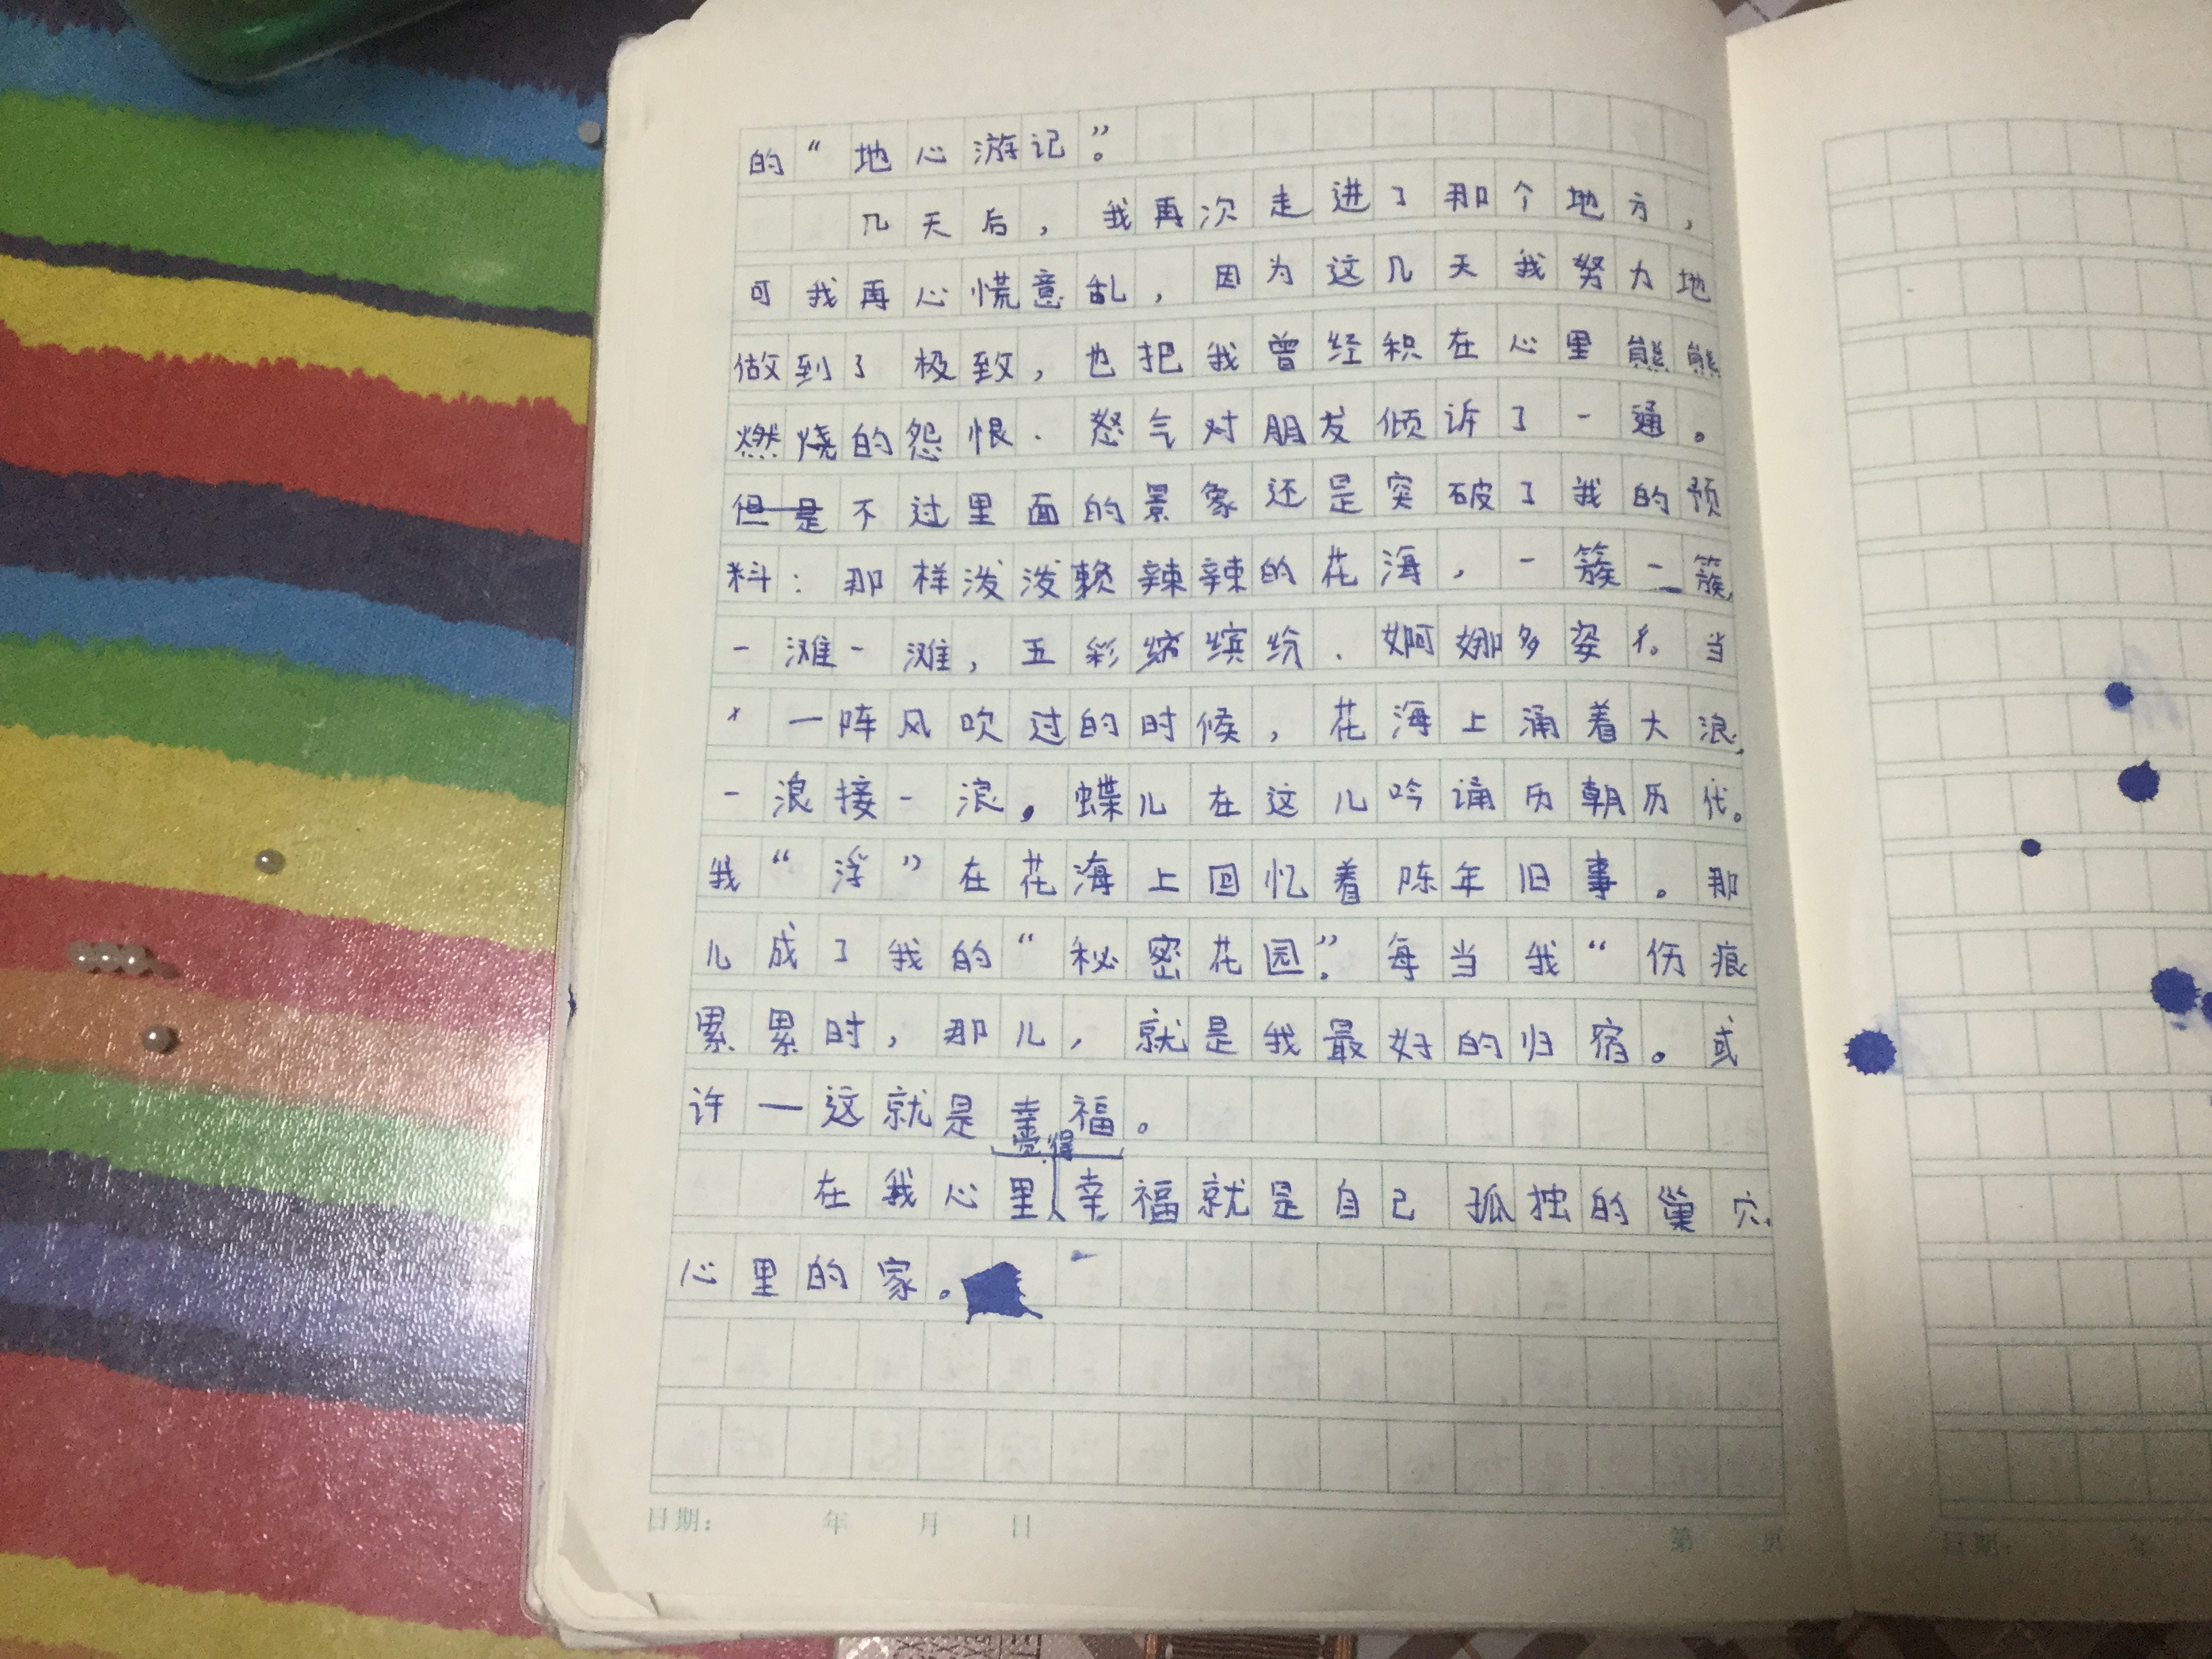 的“地心游记”。
几天后，我再次走进了那个地方，
可我再心慌意乱，因为这几天我努力地
做到了极致，也把我曾经积在心里熊熊
燃烧的怨恨、怒气对朋友倾诉了一通。
但是不过里面的景象还是突破了我的预
料：那样泼泼赖辣辣的花海，一簇一簇，
一滩一滩，五彩缤缤纷、婀娜多姿。当
一阵风吹过的时候，花海上涌着大浪，
一浪接一浪。蝶儿在这儿吟诵历朝历代。
我“浮”在花海上回忆着陈年旧事。那
儿成了我的“秘密花园”。每当我“伤痕
累累时，那儿，就是我最好的归宿。或
许一这就是幸福。
觉得
在我心里幸福就是自己孤独的巢穴、
心里的家。
日期： 年 月 日
第 页
日期： 年